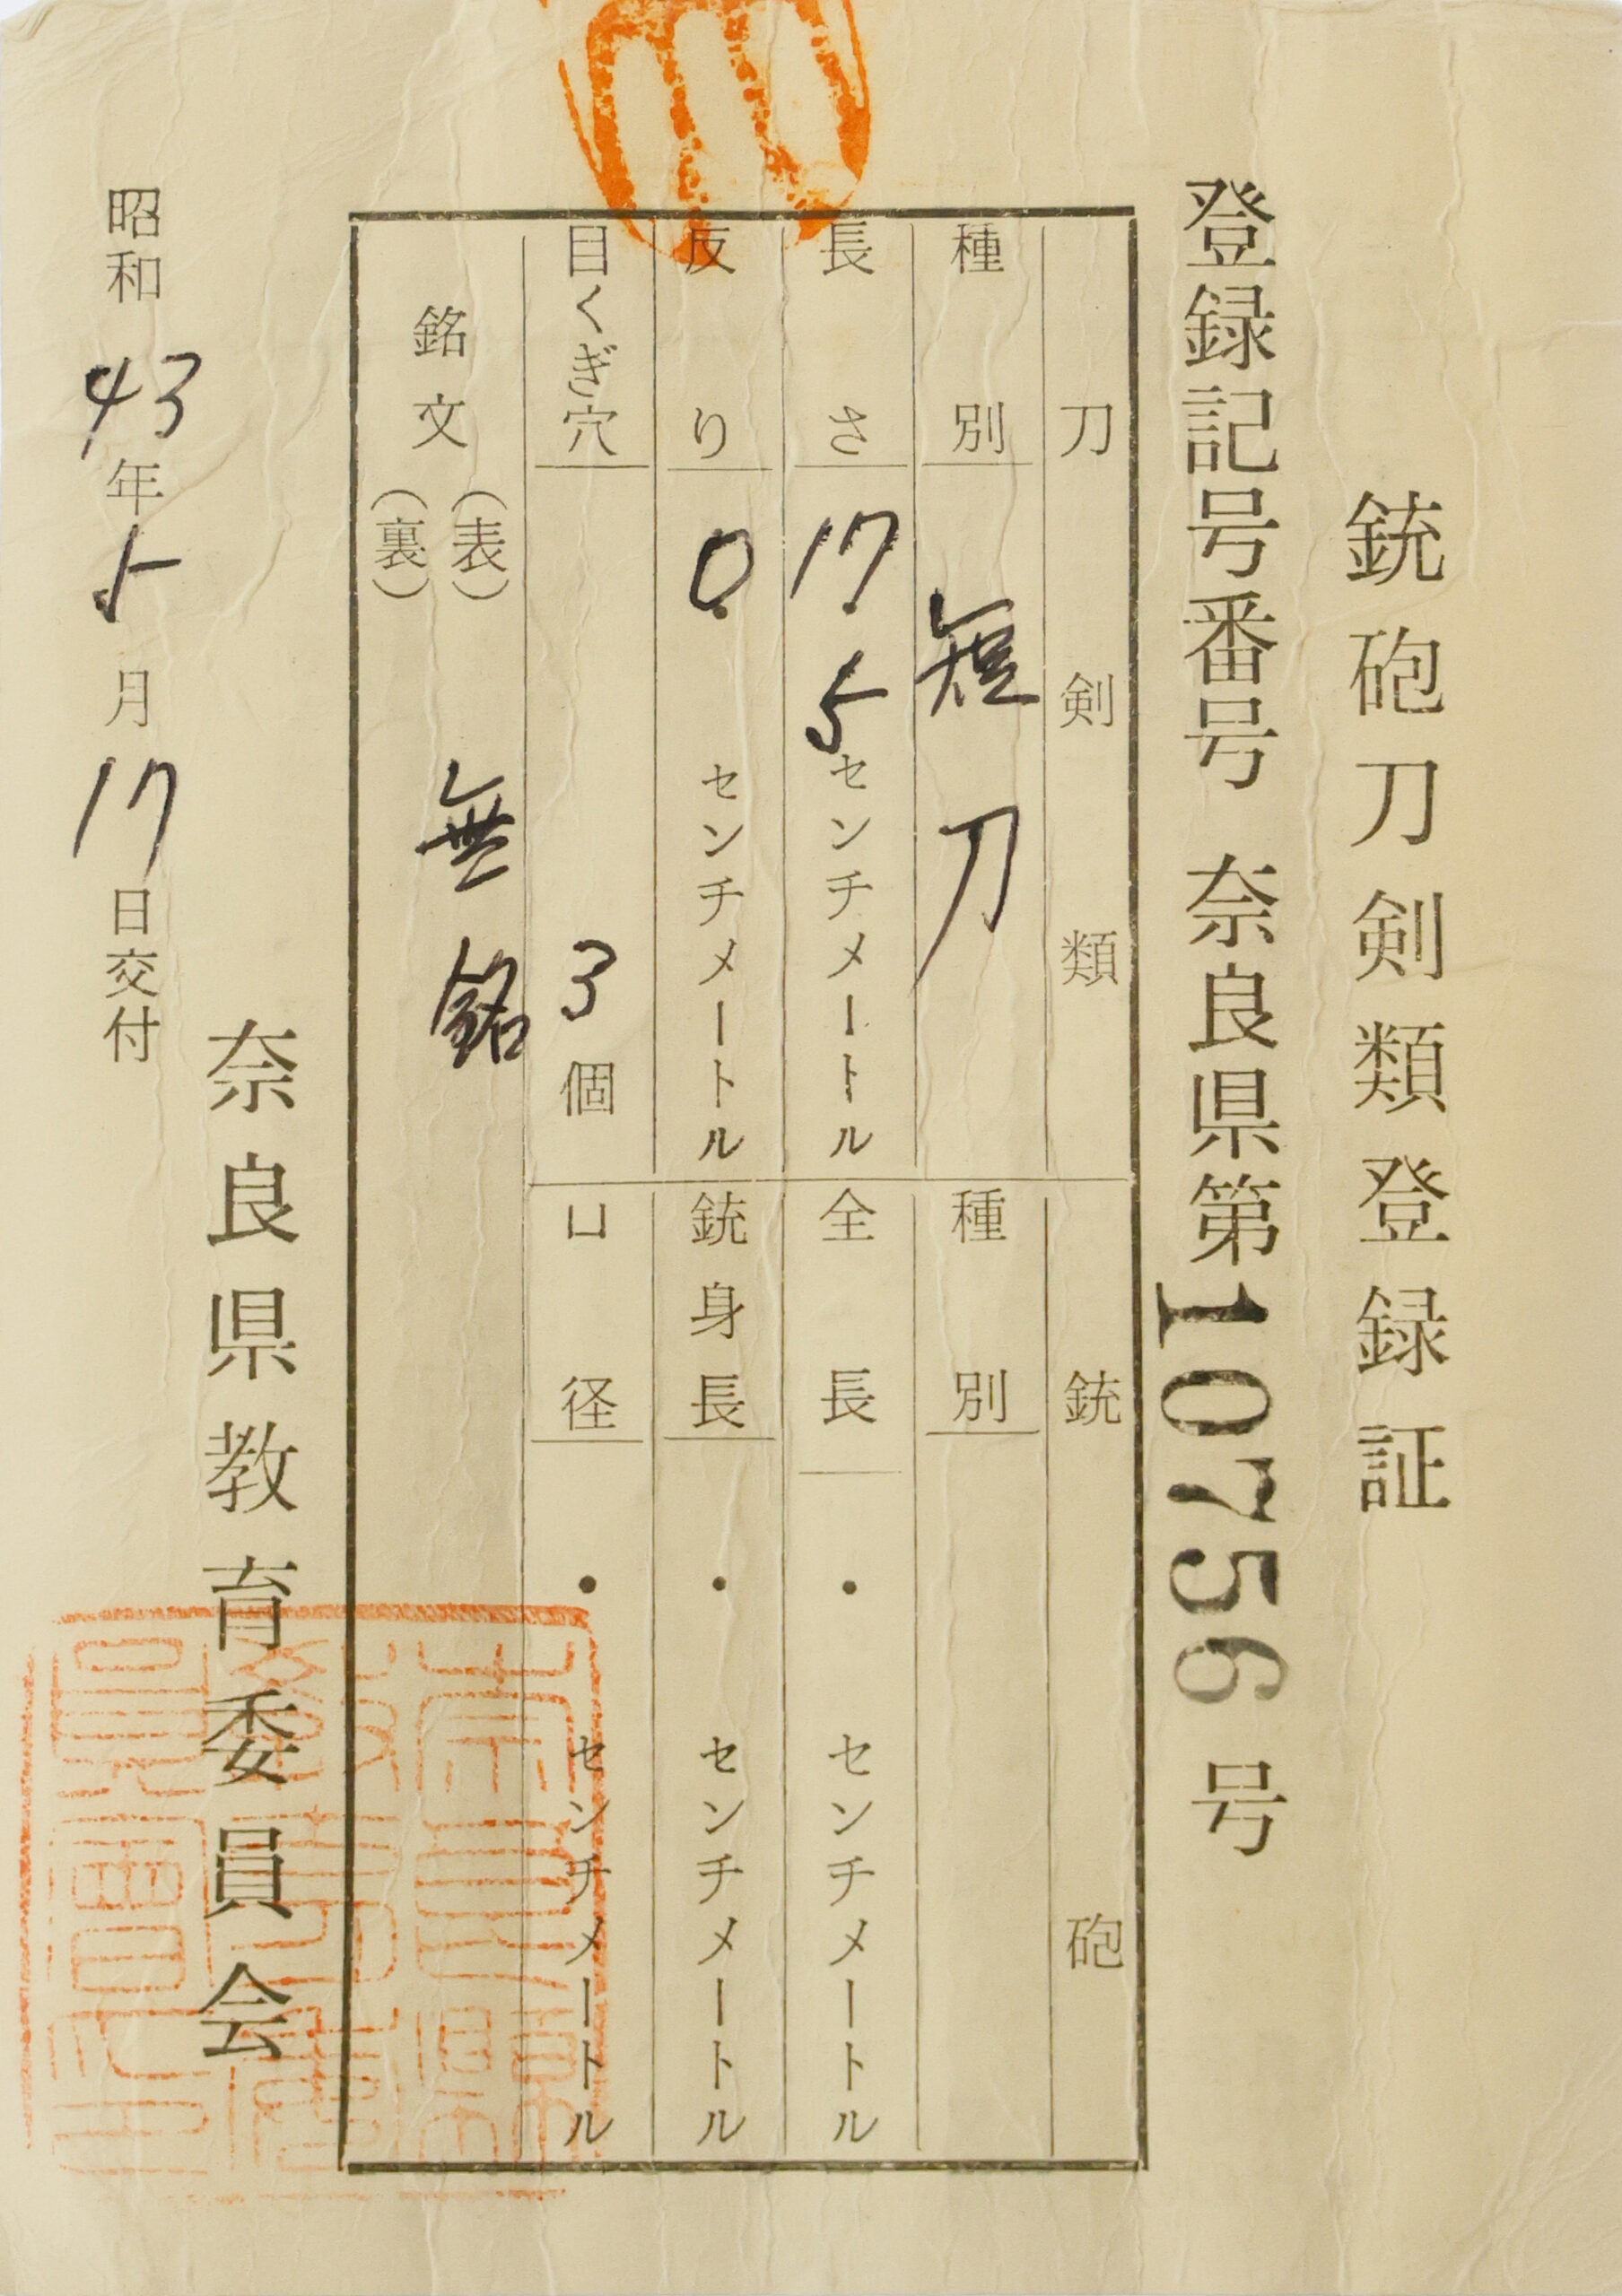 銃砲刀剣類登録証
登録記号番号 奈良県第10756号
刀剣類
種別 短刀
長さ 17.5センチメートル
反り 0.センチメートル
目くぎ穴 3個
銘文(表)(裏) 無銘
銃砲
種別
全長 ・センチメートル
銃身長 ・センチメートル
口径 ・センチメートル
昭和43年5月17日交付
奈良県教育委員会